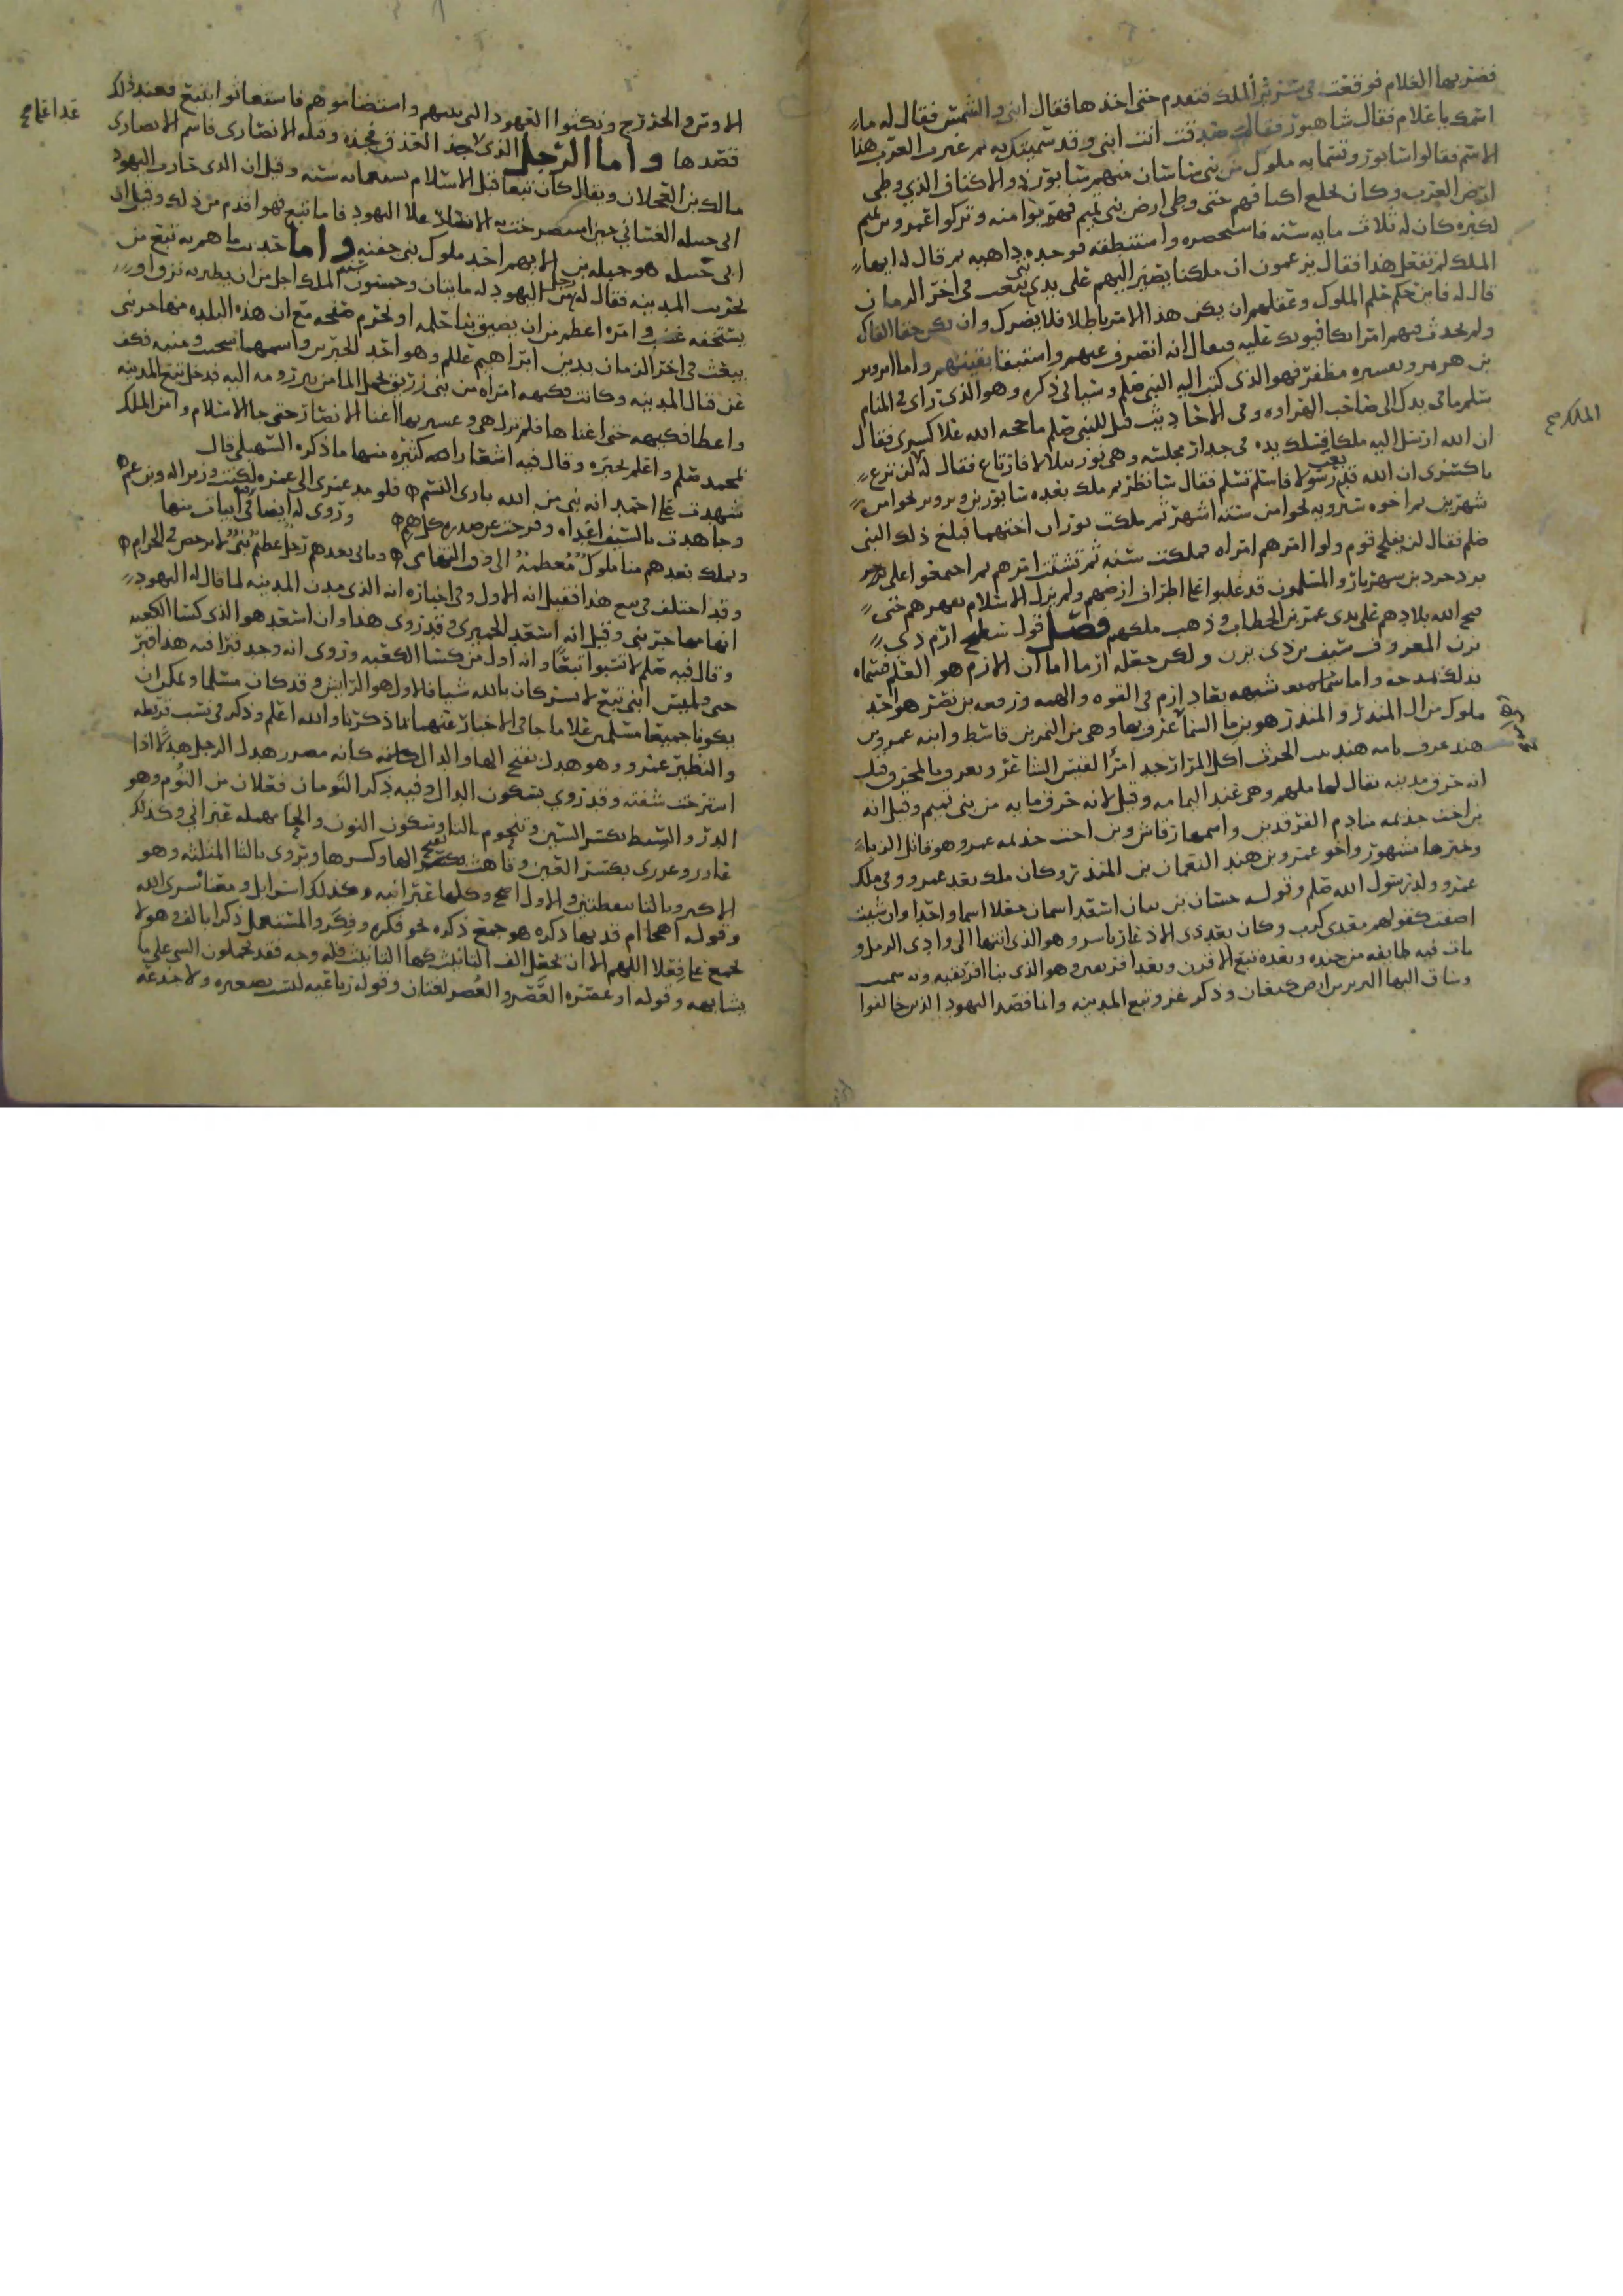 فضربها الغلام فوقعت في ستر الملك فتقدم حتى اخذها فقال ابني والشمس فقال له ما
اسمك يا غلام فقال شاهبور فقال صدقت انت ابني وقد سميتك به ثم غيرت العرب هذا
الاسم فقالوا سابور وتسما به ملوك من بني ساسان منهم سابور ذو الاكتاف الذي وطي
ارض العرب وكان يخلع اكتافهم حتى وطي ارض بني تميم فهربوا منه وتركوا عمرو بن تميم
لكبره كان له ثلاث مايه سنه فاستحضره واستنطقه فوجده داهيه ثم قال له ايها
الملك لم تفعل هذا فقال يزعمون ان ملكنا يصير اليهم على يدي نبي يبعث في اخر الزمان
قال له فاين حلم الملوك وعقلهم ان يكن هذا الامر باطلا فلا يضرك وان يكن حقا الفاك
ولم تحدث فيهم امرا يكافيونك عليه فيقال انه انصرف عنهم واستبقا بقيتهم واما ابرويز
بن هرمز وتفسيره مظفر فهو الذي كتب اليه النبي صلم وسياتي ذكره وهو الذي راى في المنام
سلم ما في يدك الى صاحب الهراوه وفي الاحاديث قيل للنبي صلم ما حجه الله على كسرى فقال
ان الله ارسل اليه ملكا فسلك يده في جدار مجلسه وهي نور يتلالا فارتاع فقال له لن ترع
يا كسرى ان الله قد بعث رسولا فاسلم تسلم فقال سانظر ثم ملك بعده سابور بن ابرويز نحوا من
شهرين ثم اخوه شيرويه نحوا من سته اشهر ثم ملكت بوران اختهما فبلغ ذلك النبي
صلم فقال لن يفلح قوم ولوا امرهم امراه فملكت سنه ثم تشتت امرهم ثم اجتمعوا على
يزدجرد بن شهريار والمسلمون قد غلبوا على اطراف ارضهم ولم يزل الاسلام يقهرهم حتى
فتح الله بلادهم على يدي عمر بن الخطاب وذهب ملكهم فصل قول سطيح ارم ذي
يزن المعروف سيف بن ذي يزن ولكن جعله ارما اما ان الارم هو العلم فسماه
بذلك مدحه واما شبهه بعاد ارم في القوه والهمه وربيعه بن نصر هو احد
ملوك من ال المنذر والمنذر هو بن ما السما عرف بها وهي من النمر بن قاسط وابنه عمرو بن
هند عرف بامه هند بنت الحرث اكل المرار جد امرا القيس الشاعر ويعرف بالمحرق قيل
انه خرق مدينه يقال لها ملهم وهي عند اليمامه وقيل لانه حرق مايه من بني تميم وقيل انه
بن اخت جذيمه منادم الفرقدين واسمها رقاش وبن اخت جذيمه عمرو هو قاتل الزباء
وخبرها مشهور واخو عمرو بن هند النعمان بن المنذر وكان ملك بعد عمرو وفي ملك
عمرو ولد رسول الله صلم وقول حسان بن تبان اسعد اسمان جعلا اسما واحدا وان شيت
اضفت كقولهم معدي كرب وكان بعد ذي الاذعار ياسر وهو الذي انتها الى وادي الرمل و
مات فيه طايفه من جنده وبعده تبع الاقرن وبعد افريقيس وهو الذي بنا افريقيه وبه سميت
وساق اليها البربر من ارض كنعان وذكر غزو تبع المدينه وانما قصد اليهود الذين خالفوا
الملك صح
الاوس والخزرج ونكثوا العهود التي بينهم واستضاموهم فاستغاثوا بتبع فعند ذلك
قصدها واما الرجل الذي اخذ العذق فجده وقتله الانصاري فاسم الانصاري
مالك بن العجلان ويقال كان تبعا قبل الاسلام بسبعمائه سنه وقيل ان الذي حارب اليهود
ابي جبله الغساني حين استصرخت به الانصار على اليهود فاما تبع فهو اقدم من ذلك وقيل ان
ابي جبله هو جبله بن الايهم اخر ملوك بني جفنه واما حديث ما هم به تبع من
تخريب المدينه فقال له رجل من اليهود له مايتان وخمسون سنه الملك اجل من ان يطير به نزق او
يستخفه غضب وامره اعظم من ان يضيق بنا حلمه او نحرم صفحه مع ان هذه البلده مهاجر نبي
يبعث في اخر الزمان بدين ابراهيم عللم وهو احد الحبرين واسمهما سحيت ومنبه فكف
عن قتال المدينه وكانت فكيهه امراه من بني زريق تحمل الما من بير رومه اليه فدخل تبع المدينه
واعطا فكيهه حتى اغناها فلم تزل هي وعشيرتها اغنا الانصار حتى جا الاسلام وامن الملك
بمحمد صلم واعلم بخبره وقال فيه اشعارا كثيره منها ما ذكره السهيلي قال
شهدت على احمد انه نبي من الله باري النسم فلو مد عمري الى عمره لكنت وزيرا له وبن عم
وجاهدت بالسيف اعداه وفرجت عن صدره كل هم وروى له ايضا في ابيات منها
ويملك بعدهم منا ملوك معظمة وياتي بعدهم رجل عظيم نبي لا يرخص في الحرام
وقد اختلف في تبع هذا فقيل انه الاول وفي اخباره انه الذي المدينه لما قال له اليهود
انها مهاجر نبي وقيل انه اسعد الحميري وقد روى هذا وان اسعد هو الذي كسا الكعبه
وقال فيه صلم لا تسبوا تبعا وانه اول من كسا الكعبه وروى انه وجد قبرا فيه هذا قبر
حبى ولميس ابنتي تبع لا تشركان بالله شيا فالاول هو الرايش وقد كان مسلما ويمكن ان
يكونا جميعا مسلمين على ما جا في الاخبار عنهما لما ذكرنا والله اعلم وذكر في نسب قريظه
والنظير عمرو وهو هدل بفتح الها والدال كانه مصدر هدل الرجل هدلا اذا
استرخت شفته وقد روي بسكون الدال وفيه ذكر التومان فعلان من التوم وهو
الدر والسبط بكسر السين وتنحوم بالتا وسكون النون والحا مهمله عبراني وكذلك
عازر وعزرى بكسر العين وقاهث بفتح الها وكسرها ويروى بالثا المثلثه وهو
الاكبر وبالتا بنقطتين والاول اصح وكلها عبرانيه وكذلك اسرايل ومعناه سري الله
وقوله اصحا ام قد نها ذكره هو جمع ذكره نحو فكره وفكر والمستعمل ذكرا بالف وهو لا
يجمع على فعل اللهم الا ان تجعل الف التانيث كها التانيث فله وجه فقد يحملون الشي على ما
يشابهه وقوله او عصره العصر والعصر لغتان وقوله رباعيه ليست بصغيره ولا جذعه